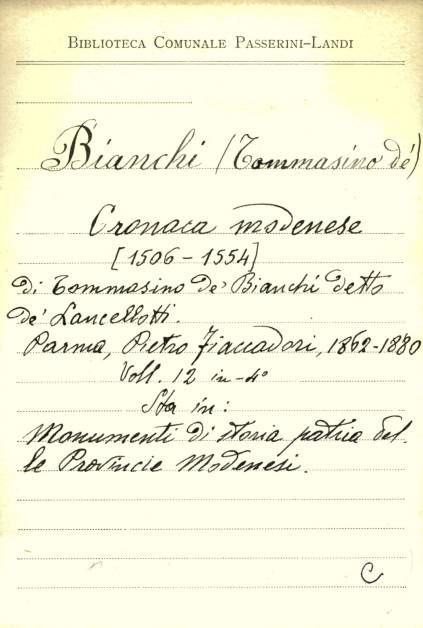 BIBLIOTECA COMUNALE PASSERINI-LANDI
Bianchi (Tommasino de')
Cronaca modenese
[1506-1554]
di Tommasino de' Bianchi detto
de' Lancellotti.
Parma, Pietro Fiaccadori, 1862-1880
Voll. 12 in-4°
Sta in:
Monumenti di storia patria del-
le Provincie Modenesi.
C